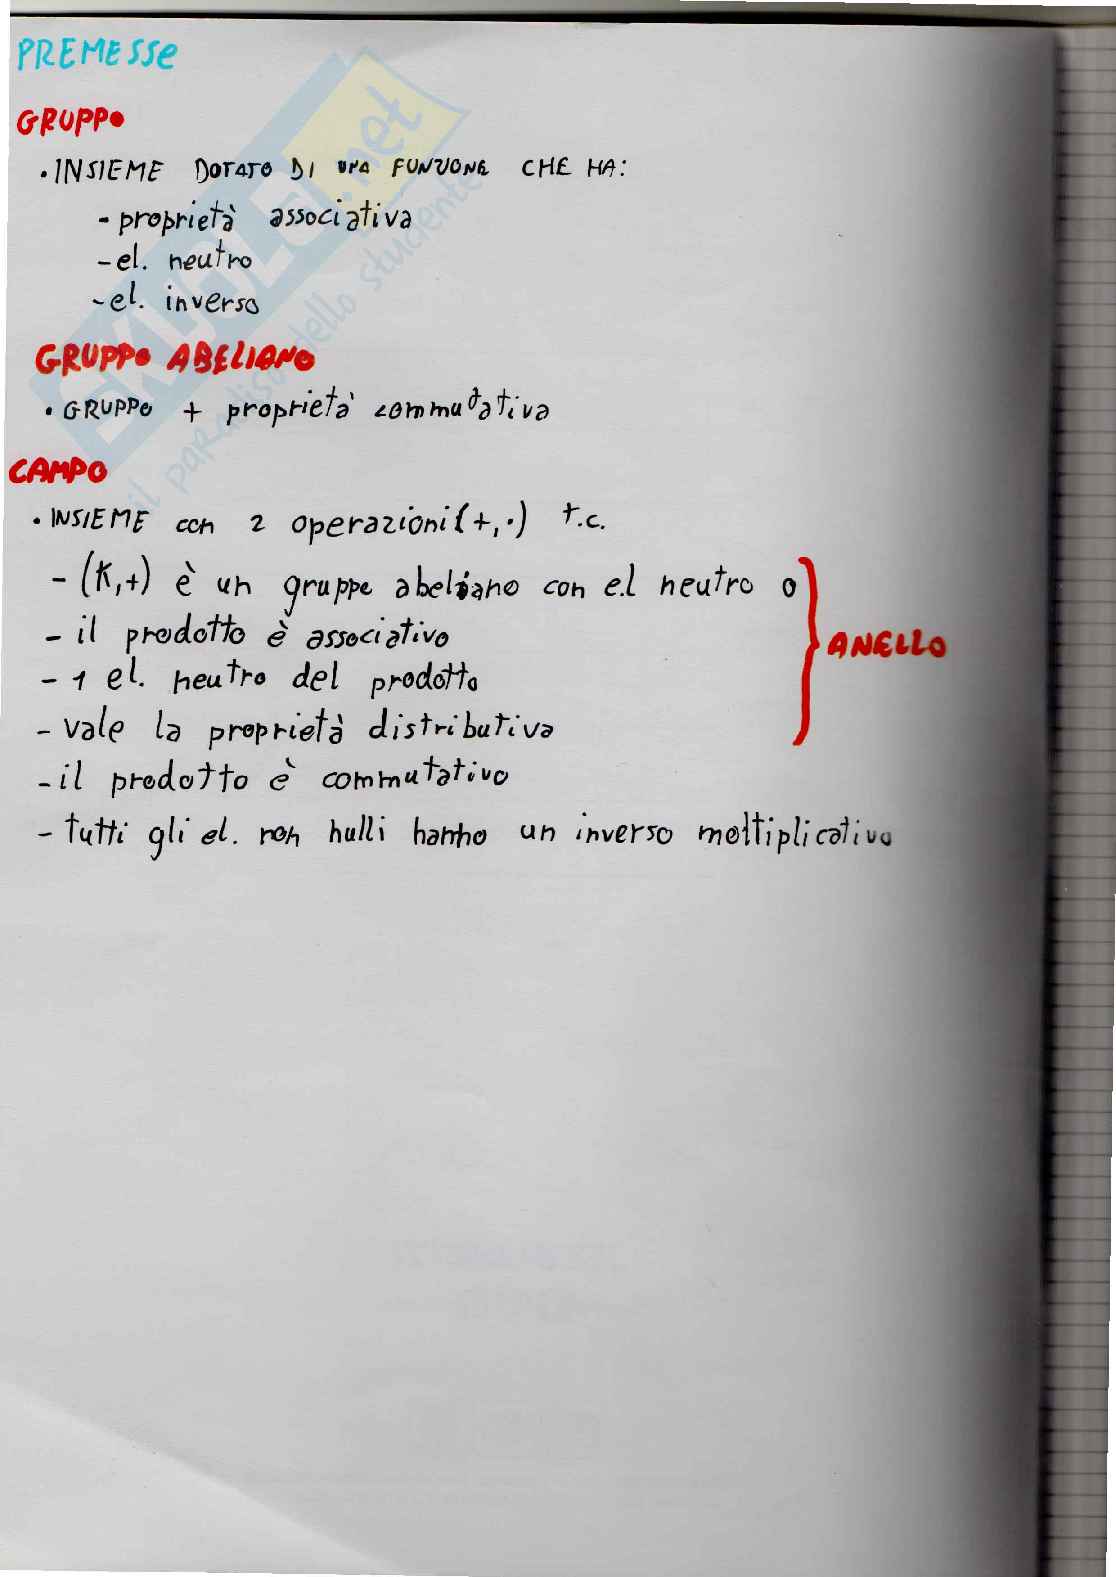 PREMESSE
GRUPPO
• INSIEME DOTATO DI UNA FUNZIONE CHE HA:
- proprietà associativa
- el. neutro
- el. inverso
GRUPPO ABELIANO
• GRUPPO + proprietà commutativa
CAMPO
• INSIEME con 2 operazioni (+,·) t.c.
- (K,+) è un gruppo abeliano con el neutro 0
- il prodotto è associativo
- 1 el. neutro del prodotto
- vale la proprietà distributiva
ANELLO
- il prodotto è commutativo
- tutti gli el. non nulli hanno un inverso moltiplicativo
SKUOLA.net
il paradiso dello studente